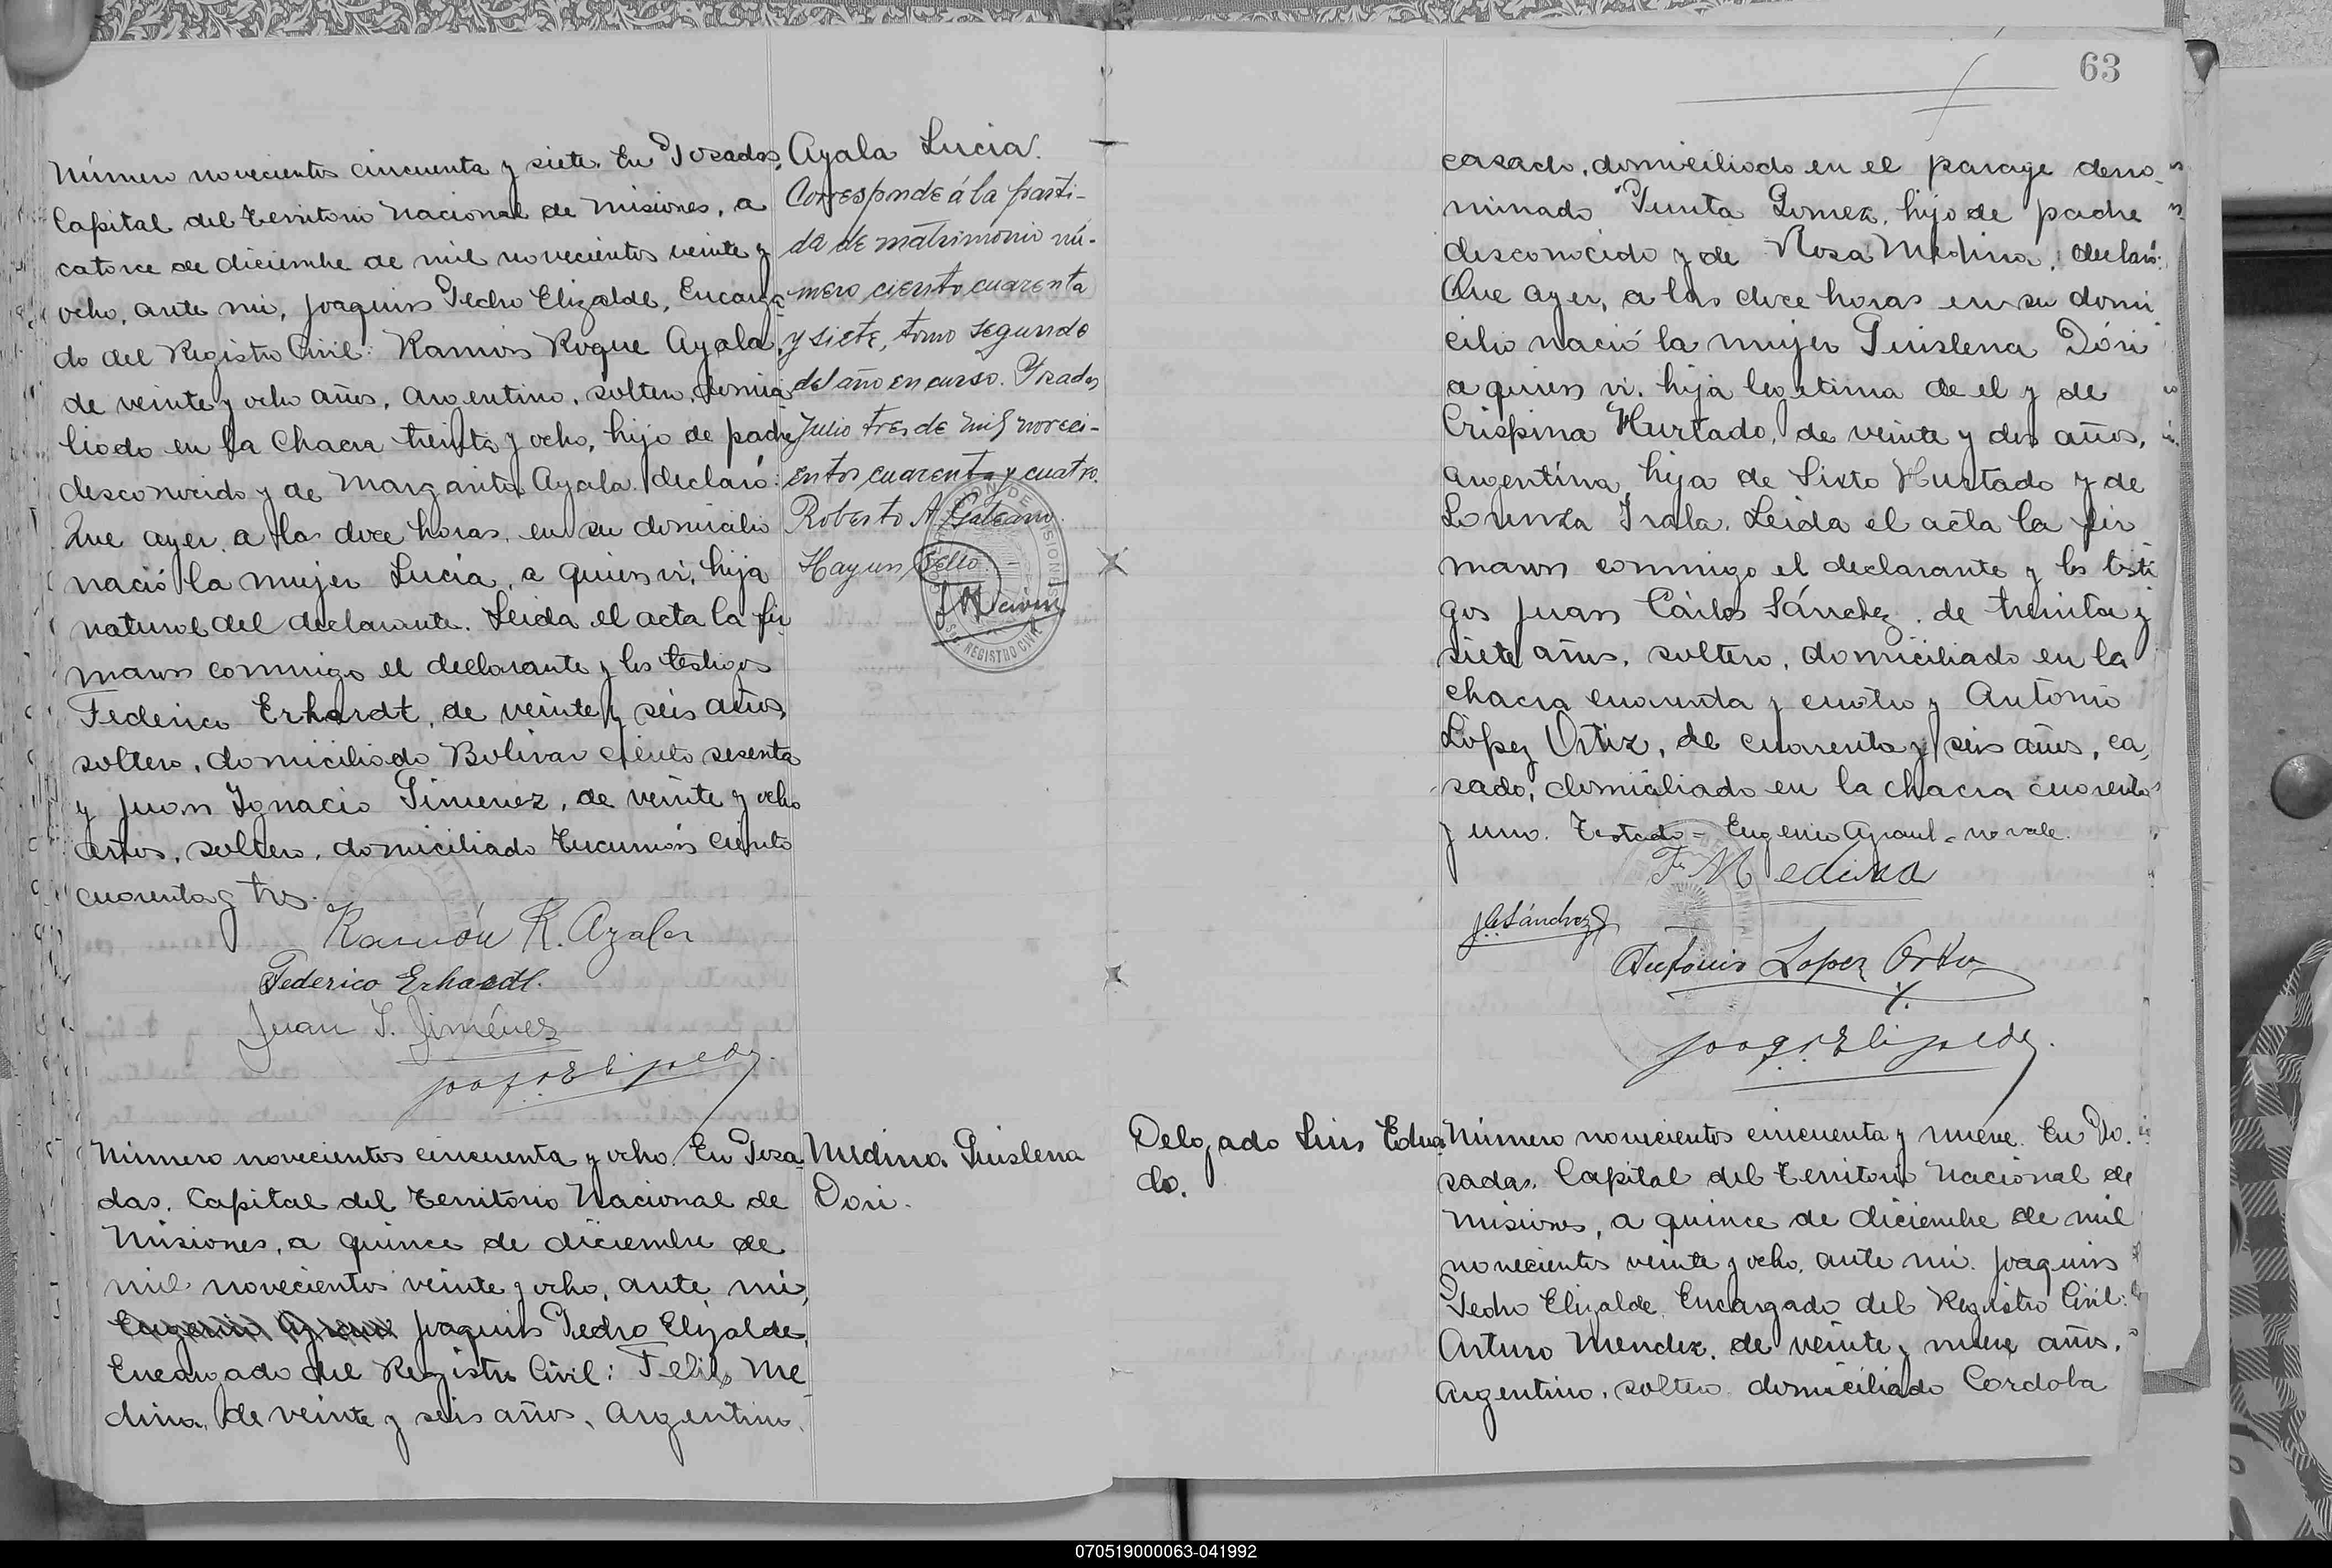 Número novecientos cincuenta y siete. En Posadas,
Capital del Territorio Nacional de Misiones, a
catorce de diciembre de mil novecientos veinte y
ocho, ante mi, Joaquin Pedro Elizalde, Encarga
do del Registro Civil: Ramón Roque Ayala,
de veinte y ocho años, Argentino, soltero, domici
liado en la Chacra treinta y ocho, hijo de padre
desconocido y de Margarita Ayala, declaró:
Que ayer, a las doce horas, en su domicilio
nació la mujer Lucia, a quien vi, hija
natural del declarante. Leida el acta la fir
maron conmigo el declarante y los testigos
Federico Erhardt, de veinte y seis años,
soltero, domiciliado Bolivar ciento sesenta
y Juan Ignacio Jimenez, de veinte y ocho
años, soltero, domiciliado Tucumán ciento
cuarenta y tres.
Ramón R. Ayala
Federico Erhardt.
Juan I. Jiménez
Joaq. P. Elizalde.
Ayala Lucia.
Corresponde á la parti-
da de matrimonio nú-
mero ciento cuarenta
y siete, tomo segundo
del año en curso. Posadas
Julio tres de mil noveci-
entos cuarenta y cuatro.
Roberto A. Galeano.
Hay un sello.
REGISTRO CIVIL
Número novecientos cincuenta y ocho. En Posa
das, Capital del Territorio Nacional de
Misiones, a quince de diciembre de
mil novecientos veinte y ocho, ante mi,
Joaquin Pedro Elizalde,
Encargado del Registro Civil: Felix Me
dina, de veinte y seis años, Argentino,
Medina Guislena
Dori.
63
casado, domiciliado en el paraje deno
minado Punta Gomez, hijo de padre
desconocido y de Rosa Medina, declaró:
Que ayer, a las doce horas en su domi
cilio nació la mujer Guislena Dóri
a quien vi, hija legitima de el y de
Crispina Hurtado, de veinte y dos años,
argentina, hija de Sixto Hurtado y de
Lorenza Irala. Leida el acta la fir
maron conmigo el declarante y los testi
gos Juan Cárlos Sánchez, de treinta y
siete años, soltero, domiciliado en la
chacra cuarenta y cuatro y Antonio
López Ortiz, de cuarenta y seis años, ca
sado, domiciliado en la chacra cuarenta
y uno. Testado = Eugenio = no vale.
F. Medina
J.C. Sánchez
Antonio Lopez Ortiz
Joaq. P. Elizalde.
Delgado Luis Eduar
do.
Número novecientos cincuenta y nueve. En Po
sadas, Capital del Territorio Nacional de
Misiones, a quince de diciembre de mil
novecientos veinte y ocho, ante mi, Joaquin
Pedro Elizalde, Encargado del Registro Civil:
Arturo Mendez, de veinte y nueve años,
Argentino, soltero, domiciliado Cordoba
070519000063-041992